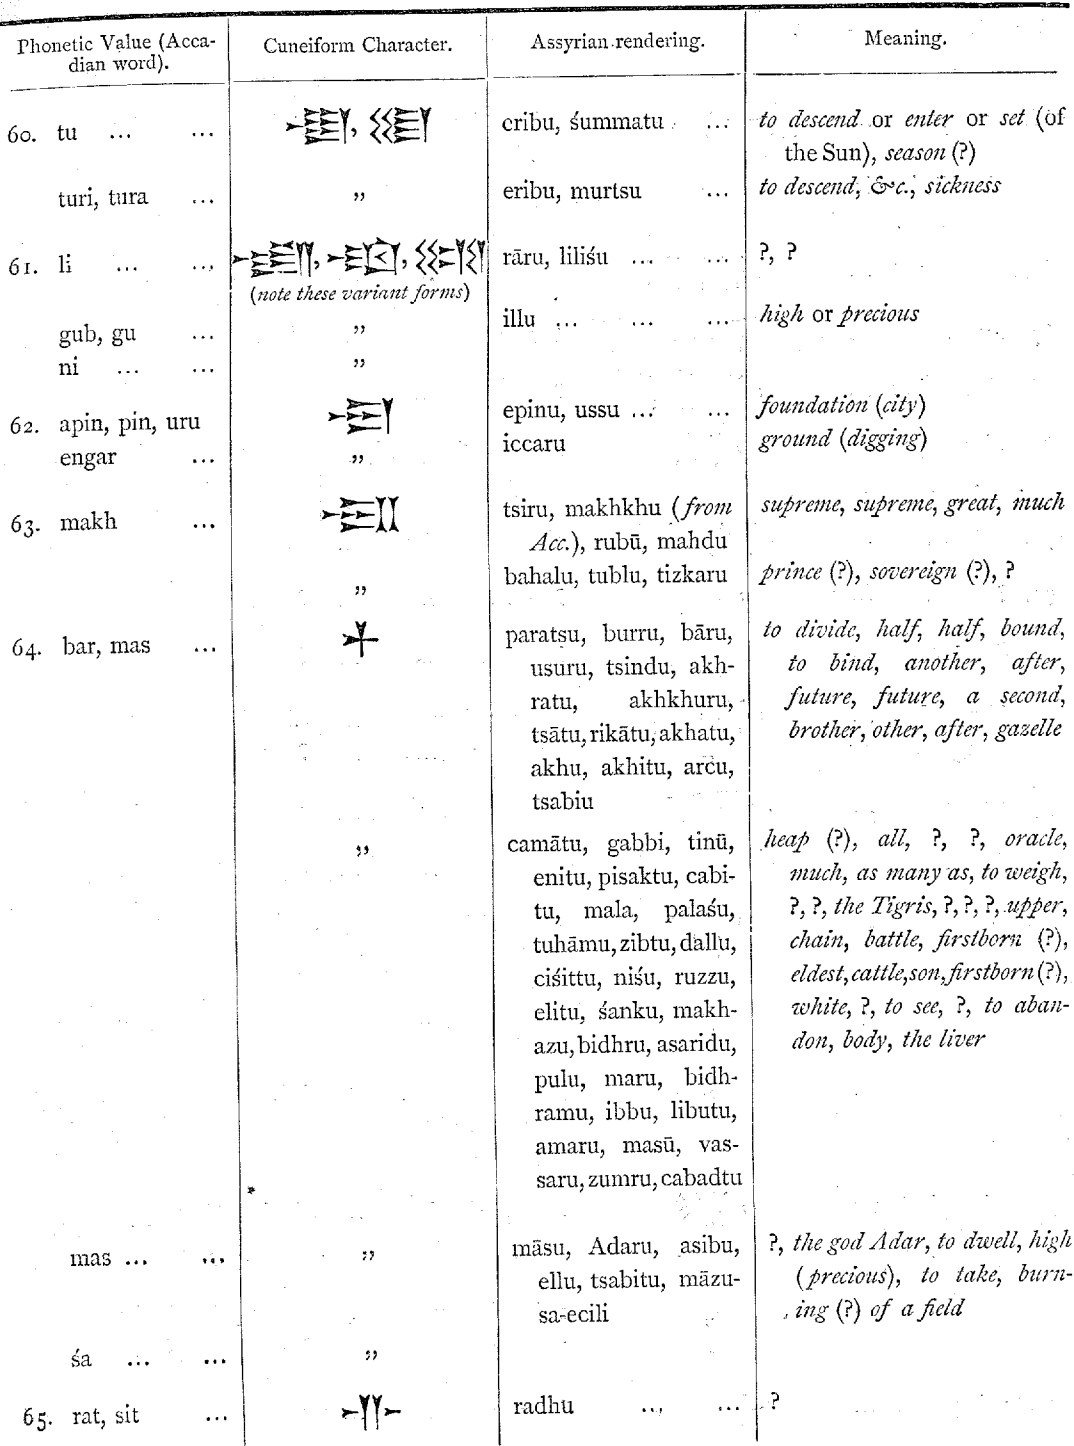 Phonetic Value (Acca-
dian word).
Cuneiform Character.
Assyrian rendering.
Meaning.
60. tu ... ...
cribu, śummatu ...
to descend or enter or set (of
the Sun), season (?)
turi, tura ...
„
eribu, murtsu ...
to descend, &c., sickness
61. li ... ...
(note these variant forms)
rāru, liliśu ... ...
?, ?
gub, gu ...
„
illu ... ... ...
high or precious
ni ... ...
„
62. apin, pin, uru
epinu, ussu ... ...
foundation (city)
engar ...
„
iccaru
ground (digging)
63. makh ...
tsiru, makhkhu (from
Acc.), rubū, mahdu
supreme, supreme, great, much
„
bahalu, tublu, tizkaru
prince (?), sovereign (?), ?
64. bar, mas ...
paratsu, burru, bāru,
usuru, tsindu, akh-
ratu, akhkhuru,
tsātu, rikātu, akhatu,
akhu, akhitu, arcu,
tsabiu
to divide, half, half, bound,
to bind, another, after,
future, future, a second,
brother, other, after, gazelle
„
camātu, gabbi, tinū,
enitu, pisaktu, cabi-
tu, mala, palaśu,
tuhāmu, zibtu, dallu,
ciśittu, niśu, ruzzu,
elitu, śanku, makh-
azu, bidhru, asaridu,
pulu, maru, bidh-
ramu, ibbu, libutu,
amaru, masū, vas-
saru, zumru, cabadtu
heap (?), all, ?, ?, oracle,
much, as many as, to weigh,
?, ?, the Tigris, ?, ?, ?, upper,
chain, battle, firstborn (?),
eldest, cattle, son, firstborn (?),
white, ?, to see, ?, to aban-
don, body, the liver
mas ... ...
„
māsu, Adaru, asibu,
ellu, tsabitu, māzu-
sa-ecili
?, the god Adar, to dwell, high
(precious), to take, burn-
ing (?) of a field
śa ... ...
„
65. rat, sit ...
radhu ... ...
?